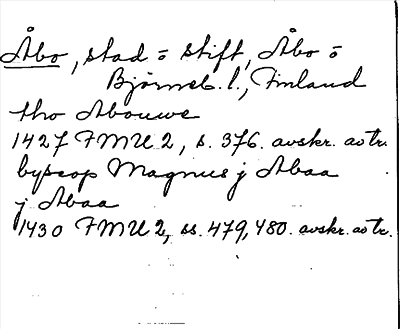 Åbo, stad o stift, Åbo o
Björneb. l., Finland
tho Abouwe
1427 FMU 2, s. 376. avskr. av tr.
bypscop Magnus j Abaa
j Abaa
1430 FMU 2, ss. 479, 480. avskr. av tr.